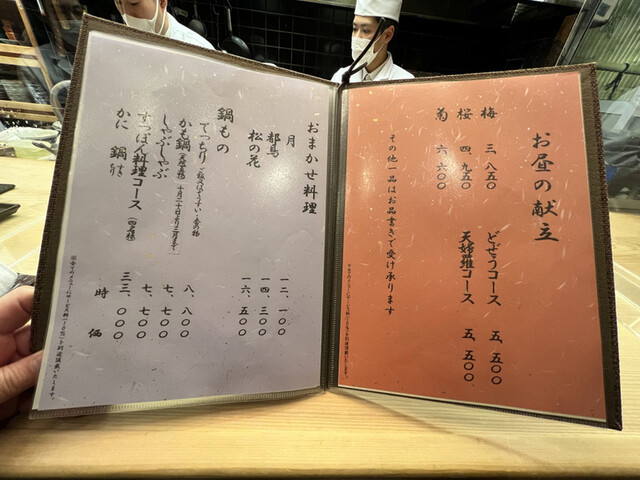 お昼の献立
梅 三、八五〇
桜 四、九五〇
菊 六、六〇〇
どぜうコース 五、五〇〇
天婦羅コース 五、五〇〇
その他一品はお品書きで受け承ります
おまかせ料理
月 一二、一〇〇
都鳥 一四、三〇〇
松の花 一六、五〇〇
鍋もの
てっちり
かも鍋 八、八〇〇
しゃぶしゃぶ 七、七〇〇
すっぽん料理コース (四名様) 三三、〇〇〇
かに鍋 時価